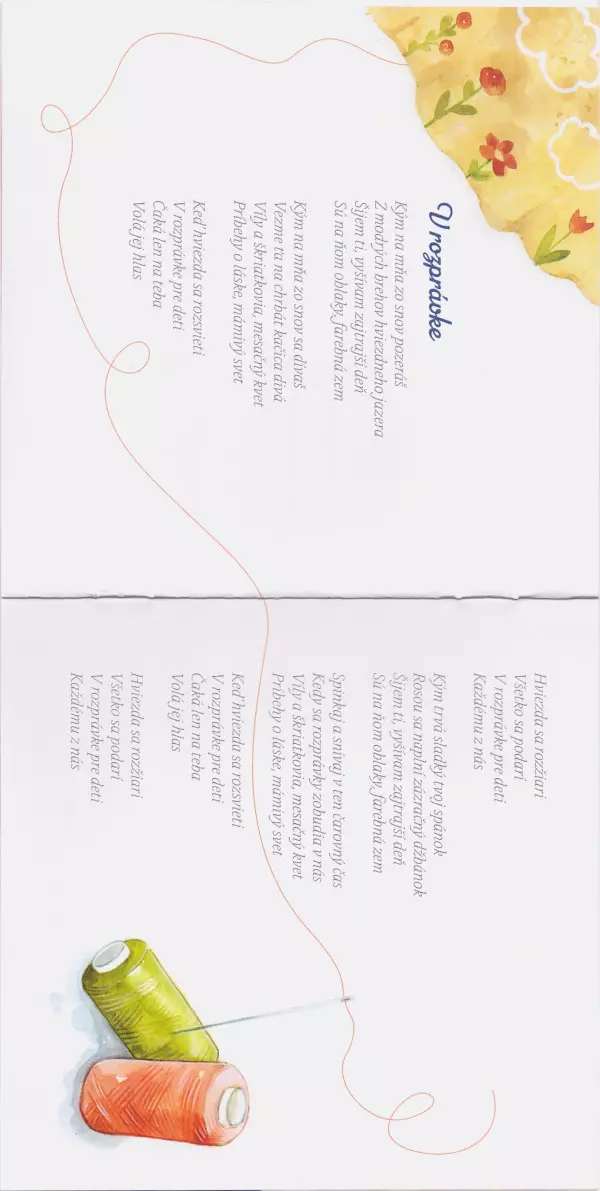 V rozprávke
Kým na mňa zo snov pozeráš
Z modrých brehov hviezdneho jazera
Šijem ti, vyšívam zajtrajší deň
Sú na ňom oblaky, farebná zem
Kým na mňa zo snov sa dívaš
Vezme ťa na chrbát kačica divá
Víly a škriatkovia, mesačný kvet
Príbehy o láske, mámivý svet
Keď hviezda sa rozsvieti
V rozprávke pre deti
Čaká len na teba
Volá jej hlas
Hviezda sa rozžiari
Všetko sa podarí
V rozprávke pre deti
Každému z nás
Kým trvá sladký tvoj spánok
Rosou sa naplní zázračný džbánok
Šijem ti, vyšívam zajtrajší deň
Sú na ňom oblaky, farebná zem
Spinkaj a snívaj v ten čarovný čas
Kedy sa rozprávky zobudia v nás
Víly a škriatkovia, mesačný kvet
Príbehy o láske, mámivý svet
Keď hviezda sa rozsvieti
V rozprávke pre deti
Čaká len na teba
Volá jej hlas
Hviezda sa rozžiari
Všetko sa podarí
V rozprávke pre deti
Každému z nás